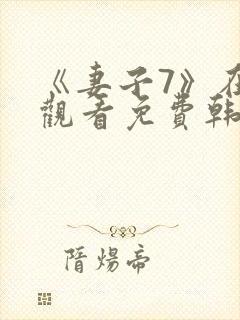 《妻子7》在
觀看免費韩
隋煬帝